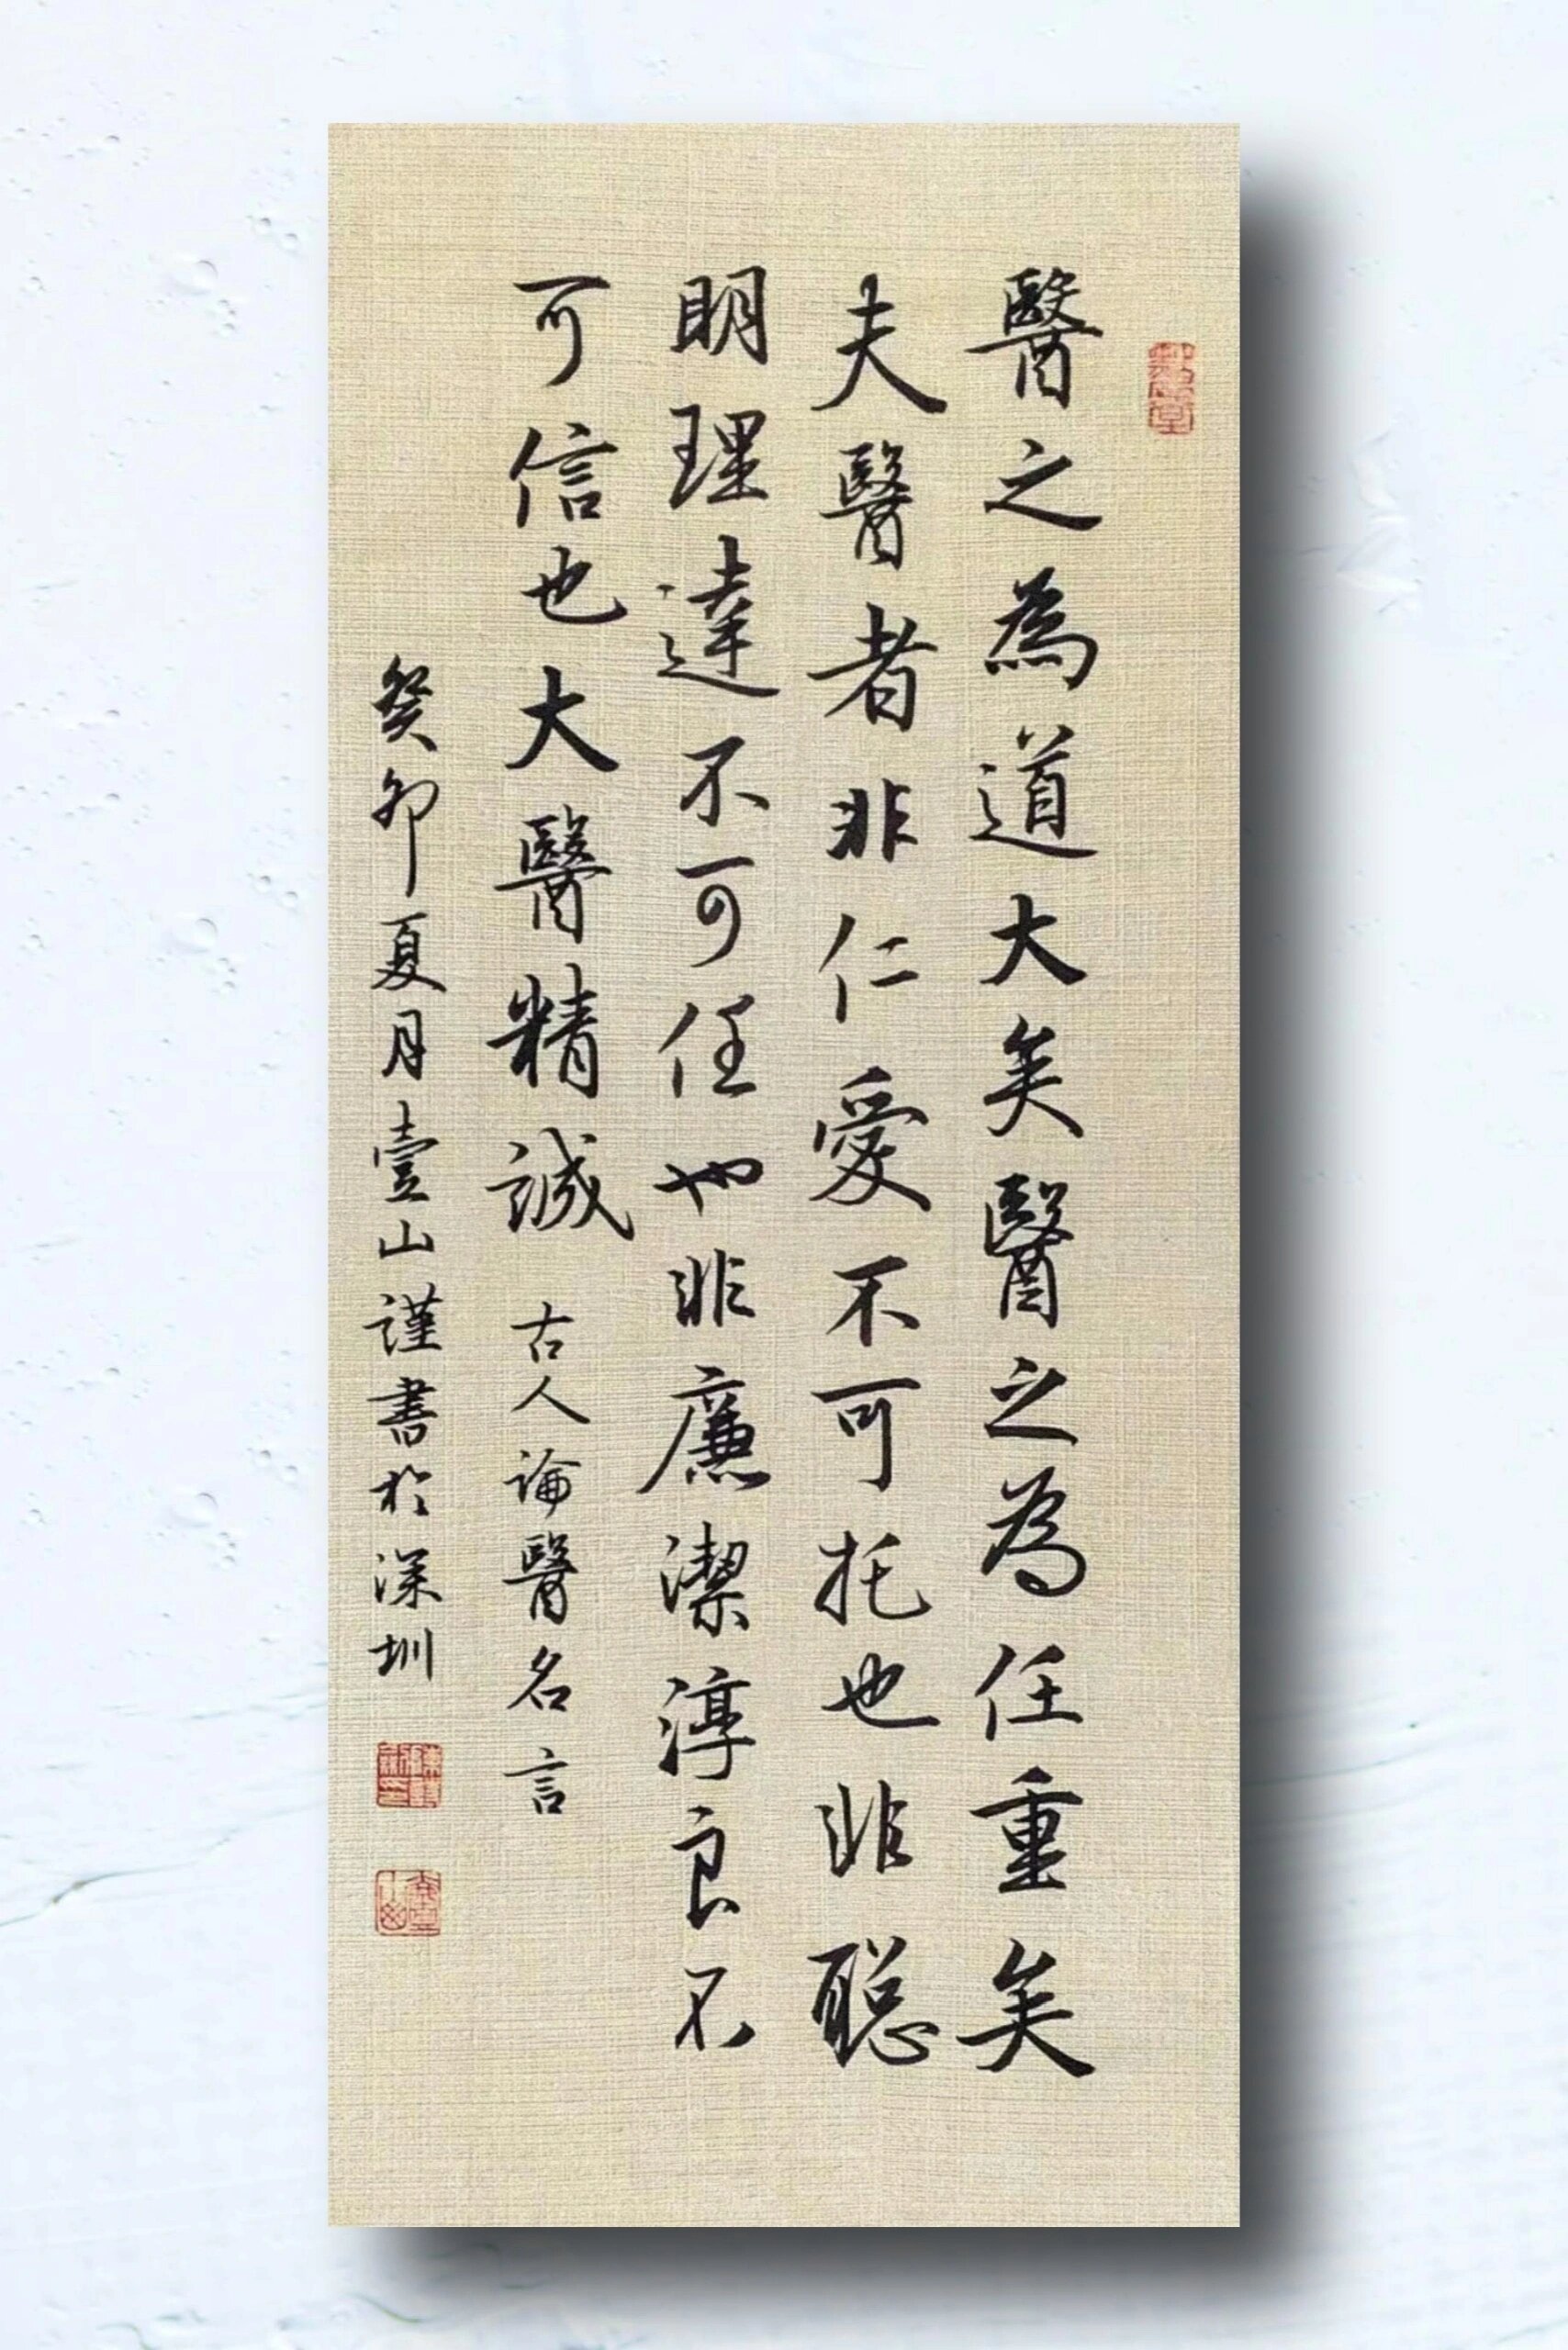 醫之為道大矣醫之為任重矣
夫醫者非仁愛不可托也非聰
明理達不可任也非廉潔淳良不
可信也大醫精誠 古人論醫名言
癸卯夏月壹山謹書於深圳